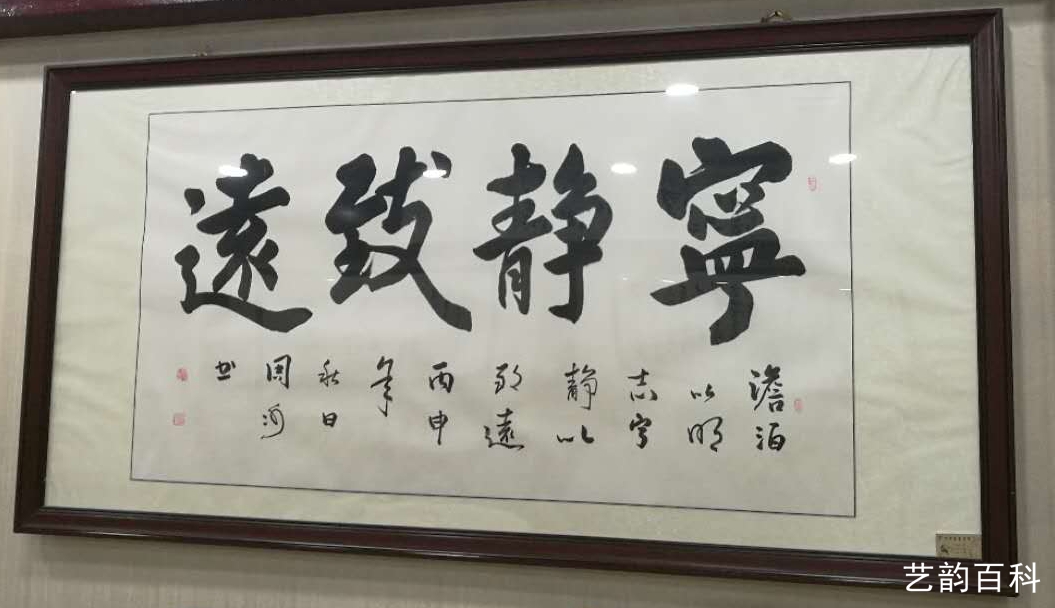 寧靜致遠
澹泊
以明
志寧
静以
致遠
丙申
年
秋日
周河
书
艺韵百科